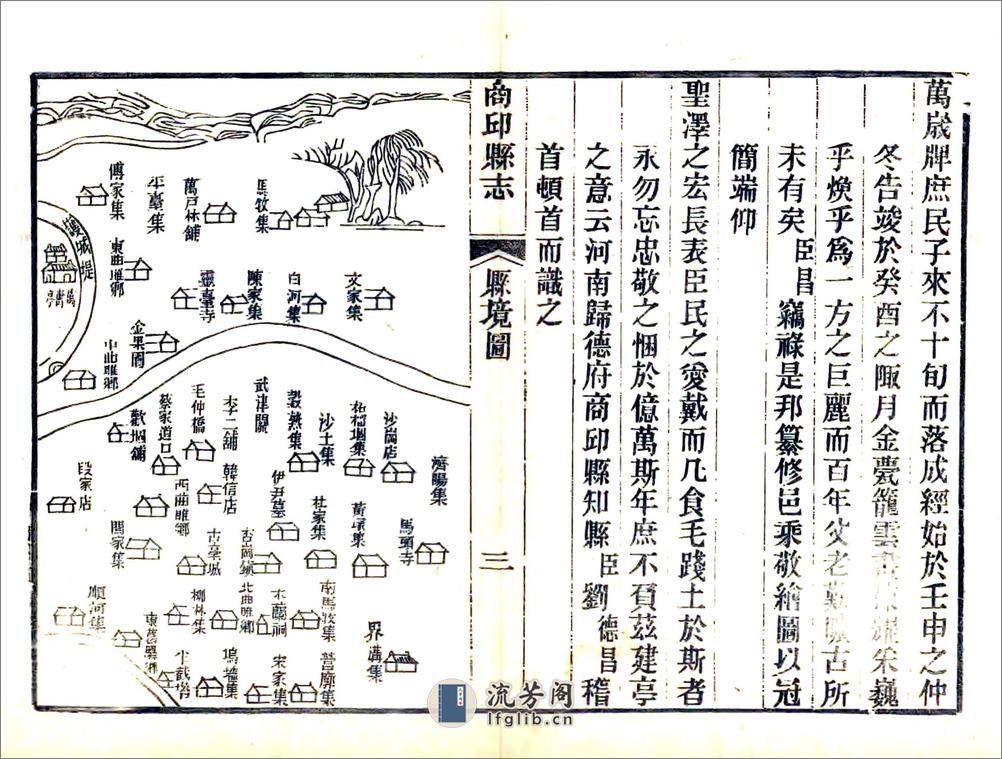 萬歲牌庶民子來不十旬而落成經始於壬申之仲
冬告竣於癸酉之陬月金甍籠雲
巍乎煥乎爲一方之巨麗而百年父老
古所未有矣臣昌竊祿是邦纂修邑乘敬繪圖以冠
簡端仰
聖澤之宏長表臣民之愛戴而凡食毛踐土於斯者
永勿忘忠敬之悃於億萬斯年庶不負茲建亭
之意云河南歸德府商邱縣知縣臣劉德昌稽
首頓首而識之
商邱縣志
縣境圖
三
馬牧集
萬戶林舖
平臺集
傅家集
護城堤
東曲雎鄉
萬壽亭
文家集
白河集
陳家集
靈臺寺
金果閣
中曲雎鄉
濟陽集
沙崗店
沙土集
穀熟集
武津關
李二舖
毛仲橋
蔡家道口
歡堌集
段家店
馬頭寺
黃塚集
杜家集
伊尹墓
韓信店
西曲雎鄉
閻家集
古亳城
杏崗鎮
北曲雎鄉
木蘭祠
南馬牧集
柳林集
順河集
界溝集
營廓集
宋家集
塢墻集
半截塔
流芳阁
lfglib.cn